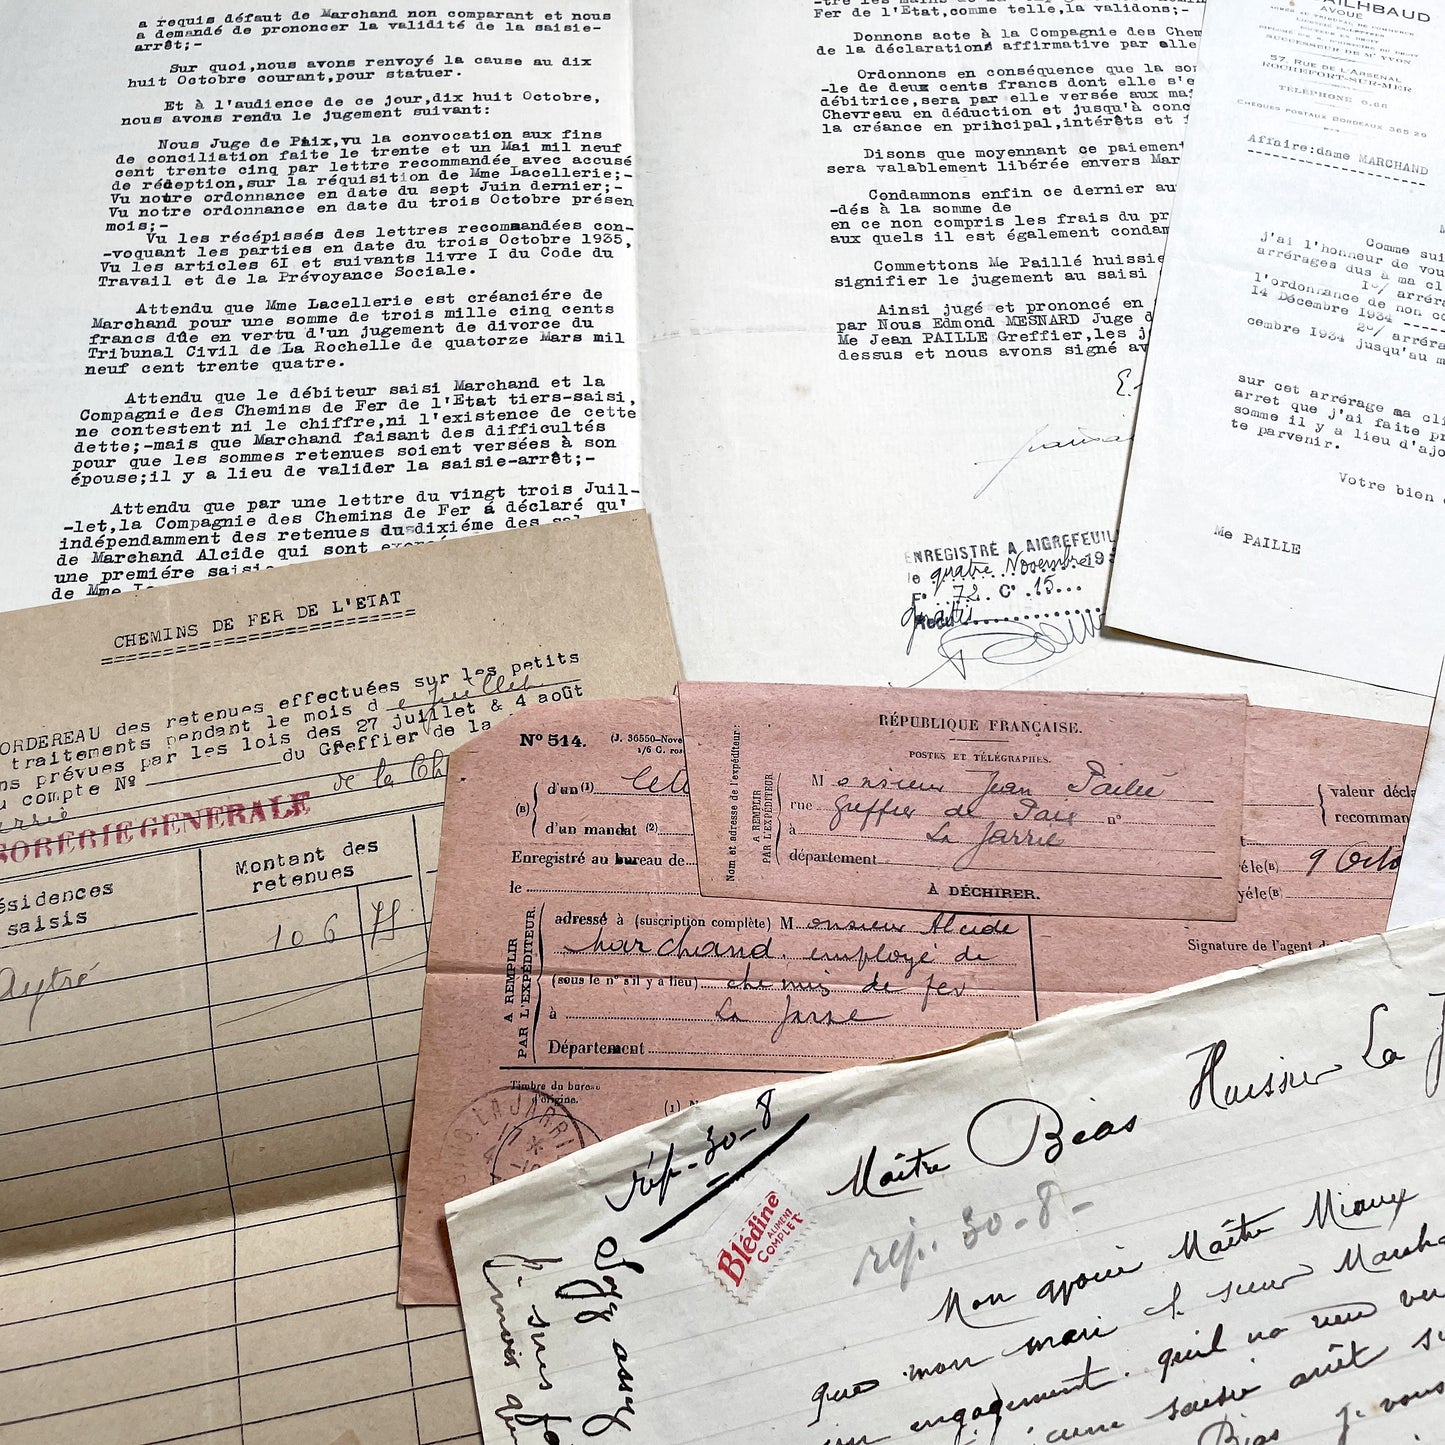 a requis défaut de Marchand non comparant et nous
a demandé de prononcer la validité de la saisie-
arrêt;-
Sur quoi,nous avons renvoyé la cause au dix
huit Octobre courant,pour statuer.
Et à l'audience de ce jour,dix huit Octobre,
nous avons rendu le jugement suivant:
Nous Juge de Paix,vu la convocation aux fins
de conciliation faite le trente et un Mai mil neuf
cent trente cinq par lettre recommandée avec accusé
de réception,sur la réquisition de Mme Lacellerie;-
Vu notre ordonnance en date du sept Juin dernier;-
Vu notre ordonnance en date du trois Octobre présen
mois;-
Vu les récépissés des lettres recommandées con-
-voquant les parties en date du trois Octobre 1935,
Vu les articles 6I et suivants livre I du Code du
Travail et de la Prévoyance Sociale.
Attendu que Mme Lacellerie est créanciére de
Marchand pour une somme de trois mille cinq cents
francs dûe en vertu d'un jugement de divorce du
Tribunal Civil de La Rochelle de quatorze Mars mil
neuf cent trente quatre.
Attendu que le débiteur saisi Marchand et la
Compagnie des Chemins de Fer de l'Etat tiers-saisi,
ne contestent ni le chiffre,ni l'existence de cette
dette;-mais que Marchand faisant des difficultés
pour que les sommes retenues soient versées à son
épouse;il y a lieu de valider la saisie-arrêt;-
Attendu que par une lettre du vingt trois Juil-
-let,la Compagnie des Chemins de Fer á déclaré qu'
indépendamment des retenues du dixiéme des
de Marchand Alcide qui sont
une premiére saisie
de Mme
Fer de l'Etat,comme telle,la validons;-
Donnons acte à la Compagnie des Chem
de la déclarations affirmative par elle
Ordonnons en conséquence que la so
-le de deux cents francs dont elle s'e
débitrice,sera par elle versée aux ma
Chevreau en déduction et jusqu'à conc
la créance en principal,intérêts et
Disons que moyennant ce paiement
sera valablement libérée envers Mar
Condamnons enfin ce dernier au
-dés à la somme de
en ce non compris les frais du pr
aux quels il est également condam
Commettons Me Paillé huissie
signifier le jugement au saisi
Ainsi jugé et prononcé en
par Nous Edmond MESNARD Juge d
Me Jean PAILLE Greffier,les j
dessus et nous avons signé av
ENREGISTRÉ A AIGREFEUIL
le quatre Novembre 19
F° 72 C° 15
gratis
AILHBAUD
AVOUÉ
SUCCESSEUR DE Me YVON
57, RUE DE L'ARSENAL
ROCHEFORT-SUR-MER
TÉLÉPHONE 0.66
CHÈQUES POSTAUX BORDEAUX 365 29
Affaire:dame MARCHAND
Comme sui
j'ai l'honneur de vou
arrérages dus à ma cl
1°/ arréra
l'ordonnance de non co
14 Décembre 1934
2°/ arréra
cembre 1934 jusqu'au m
sur cet arrérage ma cli
arret que j'ai faite pr
somme il y a lieu d'ajo
te parvenir.
Votre bien
Me PAILLE
CHEMINS DE FER DE L'ETAT
ORDEREAU des retenues effectuées sur les petits
traitements pendant le mois d e juillet
ns prévues par les lois des 27 juillet & 4 août
u compte N° du Greffier de la
de la
SORERIE GENERALE
ésidences
saisis
Montant des
retenues
106 75
Aytré
N° 514.
(J. 36550-Nove
(B)
d'un (1)
d'un mandat (2)
Enregistré au bureau de
le
A REMPLIR
PAR L'EXPÉDITEUR.
adressé à (suscription complète) M onsieur Alcide
Marchand, employé de
(sous le n° s'il y a lieu) chemis de fer
à La Jarrie
Département
Timbre du bureau
d'origine.
LA JARRI
RÉPUBLIQUE FRANÇAISE.
POSTES ET TÉLÉGRAPHES.
Nom et adresse de l'expéditeur:
A REMPLIR
PAR L'EXPÉDITEUR.
M onsieur Jean Paillé
rue Greffier de Paix n°
à La Jarrie
département
À DÉCHIRER.
valeur décla
recomman
9 Octo
Signature de l'agent
rép. 30-8
Maître Béas Huissier La J
rép. 30-8-
Blédine
ALIMENT
COMPLET
Mon avoué Maître Miaux
que mon mari le sieur Marcha
un engagement. quil na rien ve
une saisie arrêt su
Béas je vous